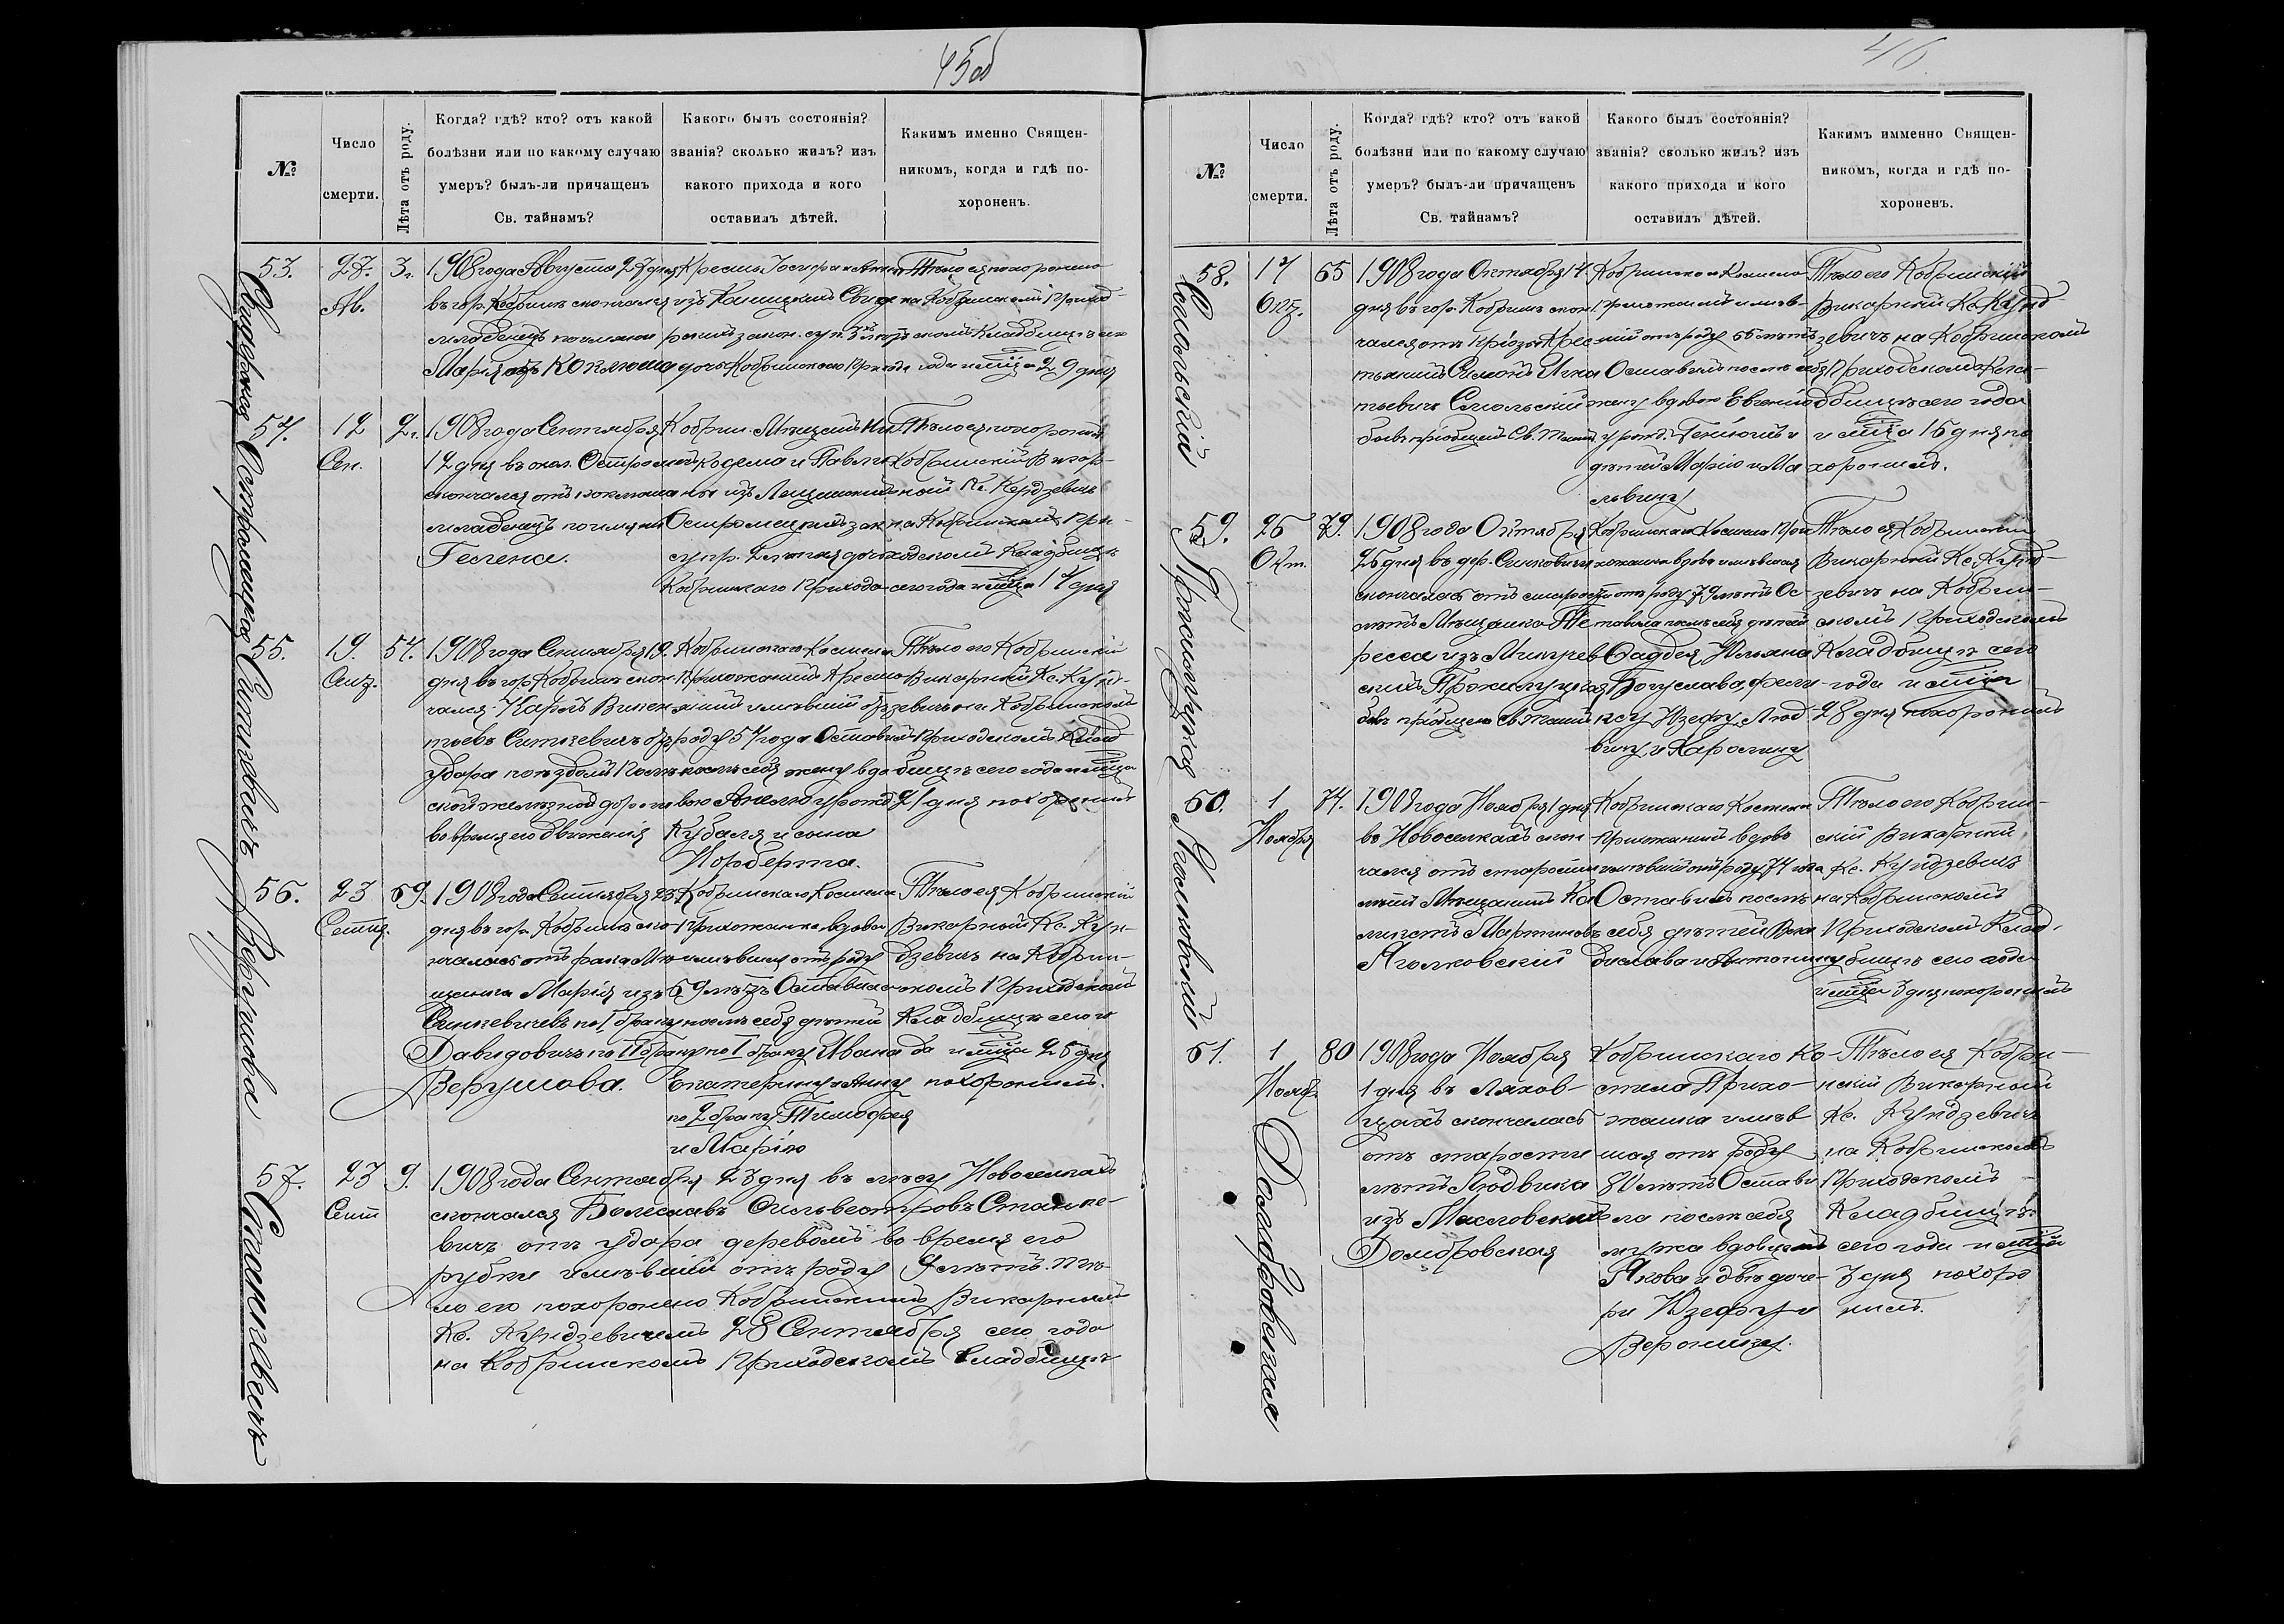 45об
№
Число
смерти.
Лѣта отъ роду.
Когда? гдѣ? кто? отъ какой
болѣзни или по какому случаю
умеръ? былъ-ли причащенъ
Св. тайнамъ?
Какого былъ состоянія?
званія? сколько жилъ? изъ
какого прихода и кого
оставилъ дѣтей.
Какимъ именно Священ-
никомъ, когда и гдѣ по-
хороненъ.
53.
27.
Ав.
3 г.
1908 года Августа 27 дня
въ гор. Кобринѣ скончался
младенецъ по имени
Марія отъ коклюша
Кресть. Іосифа и
изъ
закон. суп.
дочь Кобринскаго Прихода
Тѣло ея похоронено
на Кобринскомъ Приход-
скомъ Кладбищѣ сего
года и мѣсяца 29 дня
54.
12
Сен.
2 г.
1908 года Сентября
12 дня въ окол. Остром
скончался отъ коклюша
младенецъ по имени
Гелена.
Кобрин. Мѣщанъ Ни-
кодема и Павли-
ны изъ
Остромецкихъ зак.
супр. 2 лѣтняя дочь
Кобринскаго Прихода
Тѣло ея похоронилъ
Кобринскій Викар-
ный Кс. Кундзевичъ
на Кобринскомъ При-
ходскомъ Кладбищѣ
сего года и мѣсяца 14 дня
55.
19.
Сент.
54.
1908 года Сентября 19.
дня въ гор. Кобринѣ скон-
чался Карлъ Викен-
тьевъ Ситкевичъ отъ
удара поѣздомъ Полѣс-
ской желѣзной дороги
во время его движенія
Кобринскаго Костела
Прихожанинъ Кресть-
янинъ имѣвшій отъ
роду 54 года Оставилъ
послѣ себя жену вдо-
вою Анелю урожд.
Кубаля и сына
Норберта.
Тѣло его Кобринскій
Викарный Кс. Кунд-
зевичъ на Кобринскомъ
Приходскомъ Клад-
бищѣ сего года и мѣсяца
21 дня похоронилъ
56.
23
Сентяб.
69.
1908 года Сентября 23
дня въ гор. Кобринѣ скон-
чалась отъ рака Мѣ-
щанка Марія изъ
Синкевичевъ по I браку
Давидовичъ по II браку
Верушова.
Кобринскаго Костела
Прихожанка вдова
имѣвшая отъ роду
69 лѣтъ Оставила
послѣ себя дѣтей
по I браку Ивана
Екатерину и Анну
по 2 браку Тимофея
и Марію
Тѣло ея Кобринскій
Викарный Кс. Кун-
дзевичъ на Кобрин-
скомъ Приходскомъ
Кладбищѣ сего го-
да и мѣсяца 25 дня
похоронилъ.
57.
23
Сент
9.
1908 года Сентября 23 дня въ лѣсу Новоселкахъ
скончался Болеславъ Сильвестровъ Станке-
вичъ отъ удара деревомъ во время его
рубки имѣвшій отъ роду 9 лѣтъ. Тѣ-
ло его похоронено Кобринскимъ Викарнымъ
Кс. Кундзевичемъ 28 Сентября сего года
на Кобринскомъ Приходскомъ Кладбищѣ
Остромецкая
Ситкевичъ
Верушова
Станкевичъ
46
№
Число
смерти.
Лѣта отъ роду.
Когда? гдѣ? кто? отъ какой
болѣзни или по какому случаю
умеръ? былъ-ли причащенъ
Св. тайнамъ?
Какого былъ состоянія?
званія? сколько жилъ? изъ
какого прихода и кого
оставилъ дѣтей.
Какимъ имменно Священ-
никомъ, когда и гдѣ по-
хороненъ.
58.
14
Окт.
65
1908 года Октября 14
дня въ гор. Кобринѣ скон-
чался отъ Кре-
стьянинъ Симонъ Игна-
тьевичъ Смольскій
бывъ пріобщенъ Св. Таинъ
Кобринскаго Костела
Прихожанинъ имѣв-
шій отъ роду 65 лѣтъ
Оставилъ послѣ себя
жену вдовою Евгенію
урожд. и
дѣтей Марію и Ма-
львину
Тѣло его Кобринскій
Викарный Кс. Кунд-
зевичъ на Кобринскомъ
Приходскомъ Кла-
дбищѣ сего года
и мѣсяца 16 дня по-
хоронилъ.
59.
26
Окт.
79.
1908 года Октября
26 дня въ дер. Синковичи
скончалась отъ старости
лѣтъ Мѣщанка Те-
ресса изъ
Кобринскаго Костела При-
хожанка вдова имѣвшая
отъ роду 79 лѣтъ Ос-
тавила послѣ себя дѣтей
Фаддея, Юльяна
Богуслава, Фели-
ксу Юзефу, Люд-
вику и Каролину
Тѣло ея Кобринскій
Викарный Кс. Кунд-
зевичъ на Кобрин-
скомъ Приходскомъ
Кладбищѣ сего
года и мѣсяца
28 дня похоронилъ
60.
1
Ноября
74.
1908 года Ноября 1 дня
въ Новоселкахъ скон-
чался отъ старости
лѣтъ Мѣщанинъ Ка-
ликстъ Мартиновъ
Яголковскій
Кобринскаго Костела
Прихожанинъ вдовъ
имѣвшій отъ роду 74 года
Оставилъ послѣ
себя дѣтей Вла-
дислава и Антонину
Тѣло его Кобрин-
скій Викарный
Кс. Кундзевичъ
на Кобринскомъ
Приходскомъ Клад-
бищѣ сего года
и мѣсяца 3 дня похоронилъ
61.
1
Нояб.
80
1908 года Ноября
1 дня въ Ляхов-
цахъ скончалась
отъ старости
лѣтъ Людвика
изъ Масловскихъ
Домбровская
Кобринскаго Ко-
стела Прихо-
жанка имѣв-
шая отъ роду
80 лѣтъ Остави-
ла послѣ себя
мужа вдовцемъ
Якова и двѣ доче-
ри Юзефу и
Веронику.
Тѣло ея Кобри-
нскій Викарный
Кс. Кундзевичъ
на Кобринскомъ
Приходскомъ
Кладбищѣ
сего года и мѣсяца
3 дня похоро-
нилъ.
Смольскій
Яголковскій
Домбровская